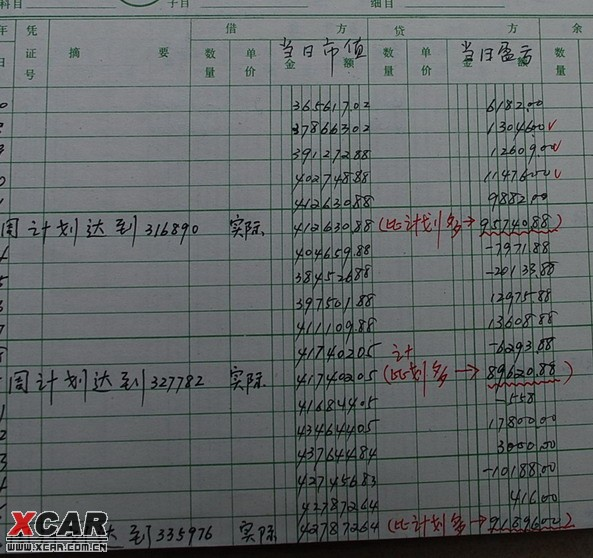 科目 子目 细目
年 凭证号 摘要 借方 贷方 余
日 数量 单价 金额 数量 单价 金额 数
当日市值 当日盈亏
365617.02 6182.00
378663.02 13046.00 √
391272.88 12609.00 √
402748.88 11476.00 √
412630.88 9882.00
周计划达到316890 实际 412630.88 (比计划多→95740.88)
404659.88 -7971.88
384526.88 -20133.88
397501.88 12975.88
411109.88 13608.88
417402.05 -6293.88
周计划达到327782 实际 417402.05 (比计划多→89620.88)
416844.05 -558
434644.05 17800.00
437644.84 3000.00
427456.83 -10188.00
427872.64 416.00
达到335976 实际 427872.64 (比计划多→91896.02)
XCAR
WWW.XCAR.COM.CN